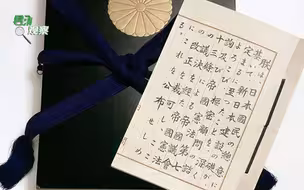 觀察
朕は、日本國民の總意に
基いて、新日本建設の礎が、
定まるに至つたことを、深く
よろこび、樞密顧問の諮
詢及び帝國憲法第七
十三條による帝國議會
の議決を経た帝國憲法
の改正を裁可し、ここ
にこれを公布せしめる。